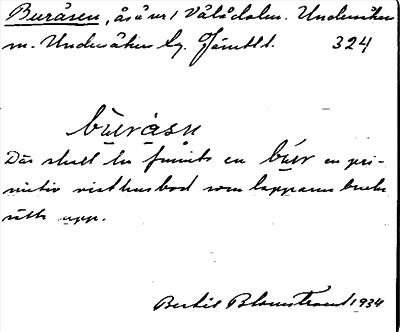 Buråsen, åsån i Vålådalen. Undersåker
m. Undersåker sn. Jämtl. 324
bùråsn
Där skall ha funnits en būr en pri-
mitiv visthusbod som lapparna bruka
sätta upp.
Bertil Blomstrand 1934